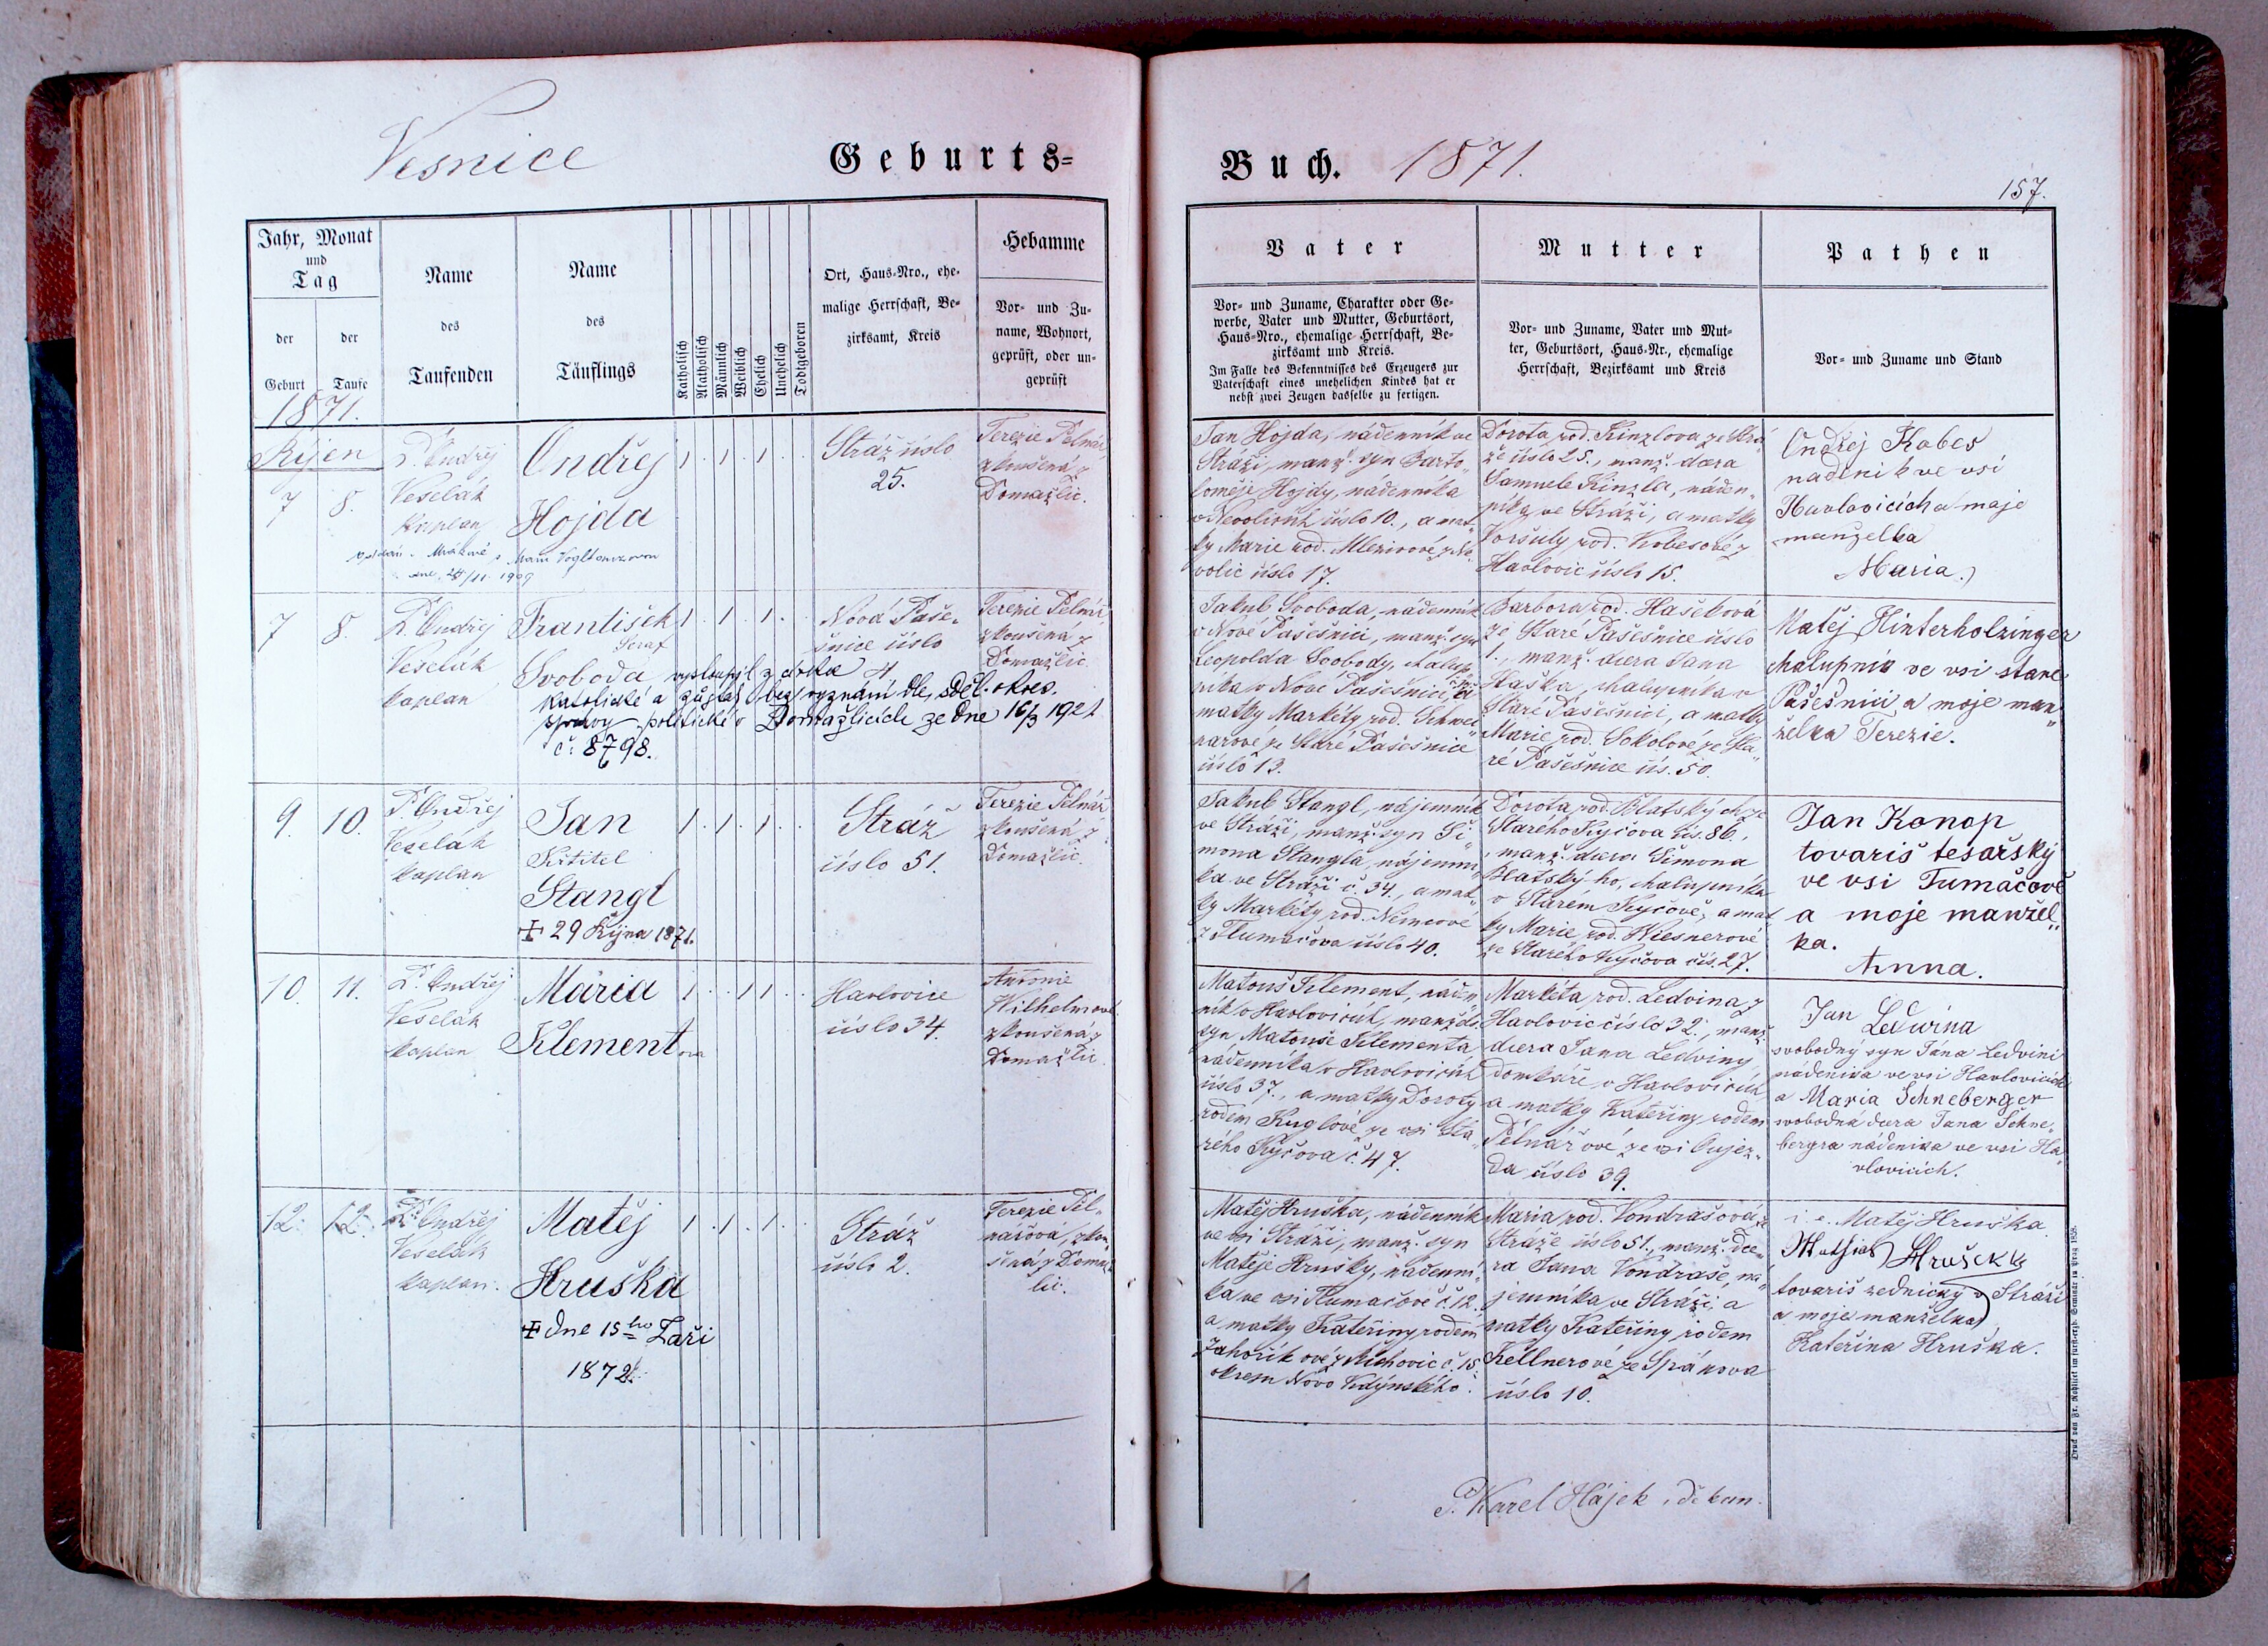 Vesnice
Geburts=
Jahr, Monat
und
Tag
der
Geburt
der
Taufe
Name
des
Taufenden
Name
des
Täuflings
Katholisch
Akatholisch
Männlich
Weiblich
Ehelich
Unehelich
Todtgeboren
Ort, Haus-Nro., ehe-
malige Herrschaft, Be-
zirksamt, Kreis
Hebamme
Vor- und Zu-
name, Wohnort,
geprüft, oder un-
geprüft
1871.
Říjen
7
8.
P. Ondřej
Veselák
kaplan
Ondřej
Hojda
1 . 1 . 1 . .
Stráž číslo
25.
Terezie Pelnář
zkoušená z
Domažlic.
7
8.
P. Ondřej
Veselák
kaplan
František
Seraf
Svoboda
vystoupil z církve
katolické a zůstal bez vyznání dle sděl. okres.
správy politické v Domažlicích ze dne 16/3 1921
č: 8798.
1 . 1 . 1 . .
Nová Paše-
šnice číslo
4
Terezie Pelnář
zkoušená z
Domažlic
9.
10.
P. Ondřej
Veselák
kaplan
Jan
Křtitel
Stangl
+ 29 Října 1871.
1 . 1 . 1 . .
Stráž
číslo 51.
Terezie Pelnář
zkoušená z
Domažlic
10.
11.
P. Ondřej
Veselák
kaplan
Maria
Klementova
1 . . 1 1 . .
Havlovice
číslo 34.
Antonie
Wilhelmová
zkoušená z
Domažlic
12.
12.
P. Ondřej
Veselák
kaplan.
Matěj
Hruška
+ dne 15ho Září
1872.
1 . 1 . 1 . .
Stráž
číslo 2.
Terezie Pel-
nářová, zkou-
šená z Domaž-
lic.
Buch. 1871.
157.
Vater
Vor- und Zuname, Charakter oder Ge-
werbe, Vater und Mutter, Geburtsort,
Haus-Nro., ehemalige Herrschaft, Be-
zirksamt und Kreis.
Im Falle des Bekenntnisses des Erzeugers zur
Vaterschaft eines unehelichen Kindes hat er
nebst zwei Zeugen dasselbe zu fertigen.
Mutter
Vor- und Zuname, Vater und Mut-
ter, Geburtsort, Haus-Nr., ehemalige
Herrschaft, Bezirksamt und Kreis
Pathen
Vor- und Zuname und Stand
Jan Hojda, nádenník ve
Stráži, manž. syn Barto-
loměje Hojdy, nádenníka
v Nevolicích číslo 10., a mat-
ky Marie rod. z Ne-
volic číslo 17.
Dorota, rod. Kinzlova ze Strá-
že číslo 25., manž. dcera
Samuele Kinzla, náden-
níka ve Stráži, a matky
Voršuly rod. Kobesové z
Havlovic číslo 15.
Ondřej Kobes
nadeník ve vsi
Havlovicích a moje
manželka
Maria.
Jakub Svoboda, nádenník
v Nové Pašešnici, manž. syn
Leopolda Svobody, chalup-
níka v Nové Pašešnici, a
matky Markéty rod.
ze Staré Pašešnice
číslo 13.
Barbora rod. Hašková
ze Staré Pašešnice číslo
1., manž. dcera Jana
Haška, chalupníka v
Staré Pašešnici, a matky
Marie, rod. Sokolové ze Sta-
ré Pašešnice čís. 50.
Matěj Hinterholzinger
chalupník ve vsi stare
Pašešnici a moje man-
želka Terezie.
Jakub Stangl, nájemník
ve Stráži, manž. syn Ši-
mona Stangla, nájemní-
ka ve Stráži č. 34., a mat-
ky Markéty, rod. Němcové
z Tlumačova číslo 40.
Dorota, rod. Blatských ze
Starého Kyčova čís. 86.,
manž. dcera Šimona
Blatského, chalupníka
v Starém Kyčově, a mat-
ky Marie rod. Wiesnerové
ze Starého Kyčova čís. 27.
Jan Konop
tovariš tesařský
ve vsi Tumačově
a moje manžel-
ka.
Anna.
Matouš Klement, náden-
ník v Havlovicích, manžel.
syn Matouše Klementa
nádenníka v Havlovicích
číslo 37., a matky Doroty
rodem Kuglové ze vsi Sta-
rého Kyčova č. 47.
Markéta, rod. Ledvina z
Havlovic číslo 32., manž.
dcera Jana Ledviny
domkáře v Havlovicích
a matky Kateřiny rodem
Pelnářové ze vsi Oujez-
da číslo 39.
Jan
Ledwina
svobodný syn Jána Ledvini
nádenika ve vsi Havlovicích
a Maria Schneberger
svobodná dcera Jana Schne-
bergra nádenika ve vsi Ha-
vlovicích.
Matěj Hruška, nádenník
ve vsi Stráži, manž. syn
Matěje Hrušky, nádenní-
ka ve vsi Tlumačově č. 12.
a matky Kateřiny rodem
Zahoříkové z Míchovic č. 15
okresu Novo Kdýnského.
Maria, rod. Vondrašová ze
Stráže číslo 51., manž. dce-
ra Jana Vondraše, ná-
jemníka ve Stráži, a
matky Kateřiny rodem
Kellnerové ze Spáňova
číslo 10.
i. e. Matěj Hruška
Mathias Hruschka
tovariš zednický v Stráži
a moje manželka
Kateřina Hruška.
P. Karel Hájek, děkan.